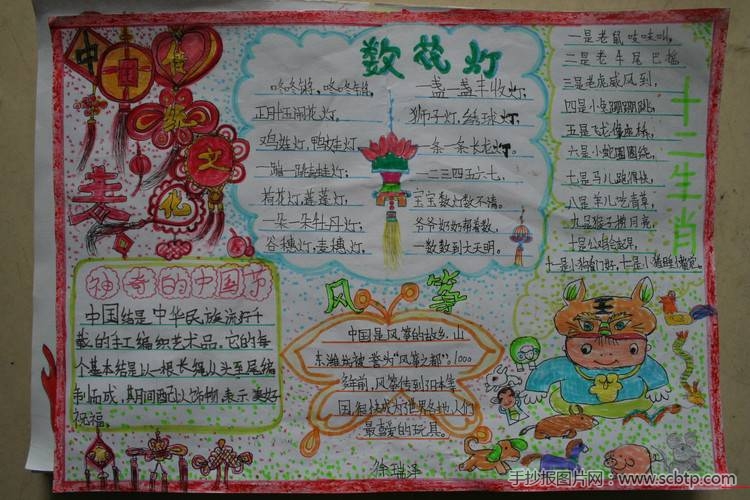 中国传统文化
数花灯
咚咚锵,咚咚锵,
正月十五闹花灯。
鸡娃灯,鸭娃灯,
一蹦一跳蛙蛙灯。
荷花灯,莲莲灯,
一朵一朵牡丹灯。
谷穗灯,麦穗灯,
一盏一盏丰收灯。
狮子灯,绣球灯,
一条一条长龙灯。
一二三四五六七,
宝宝数灯数不清。
爷爷奶奶帮着数,
一数数到大天明。
十二生肖
一是老鼠吱吱叫,
二是老牛尾巴摇,
三是老虎威风到,
四是小兔蹦蹦跳,
五是飞龙像座桥,
六是小蛇圈圈绕,
七是马儿跑得快,
八是羊儿吃青草,
九是猴子捞月亮,
十是公鸡起早,
十一是小狗看门好,十二是小猪睡懒觉。
神奇的中国节
中国结是中华民族流行千
载的手工编织艺术品,它的每
个基本结是以一根长绳从头至尾编
制而成,期间配以饰物,表示美好
祝福。
风筝
中国是风筝的故乡,山
东潍坊被誉为"风筝之都"。1000
年前,风筝传到了日本等
国,很快成为世界各地人们
最喜爱的玩具。
徐瑞泽
手抄报图片网:www.scbtp.com